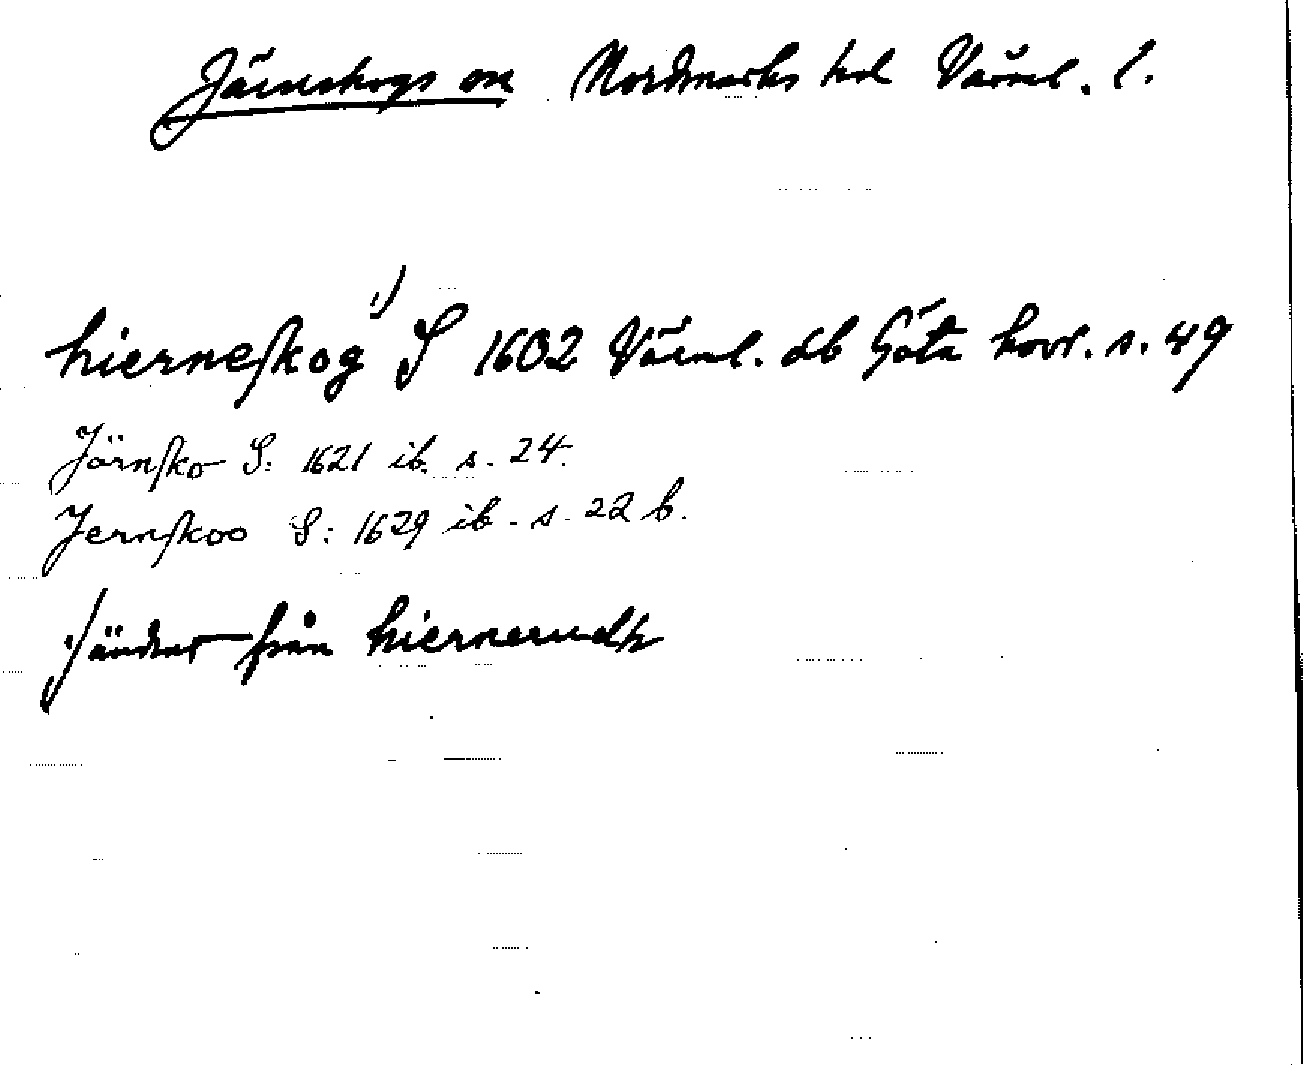 Järnskogs sn Nordmarks hd Värml. l.
hierneskog ¹) S 1602 Värml. db Göta hovr. s. 49
Järnsko S: 1621 ib. s. 24.
Jernskoo S: 1629 ib. s. 22 b.
¹) ändrat från hiernerudh